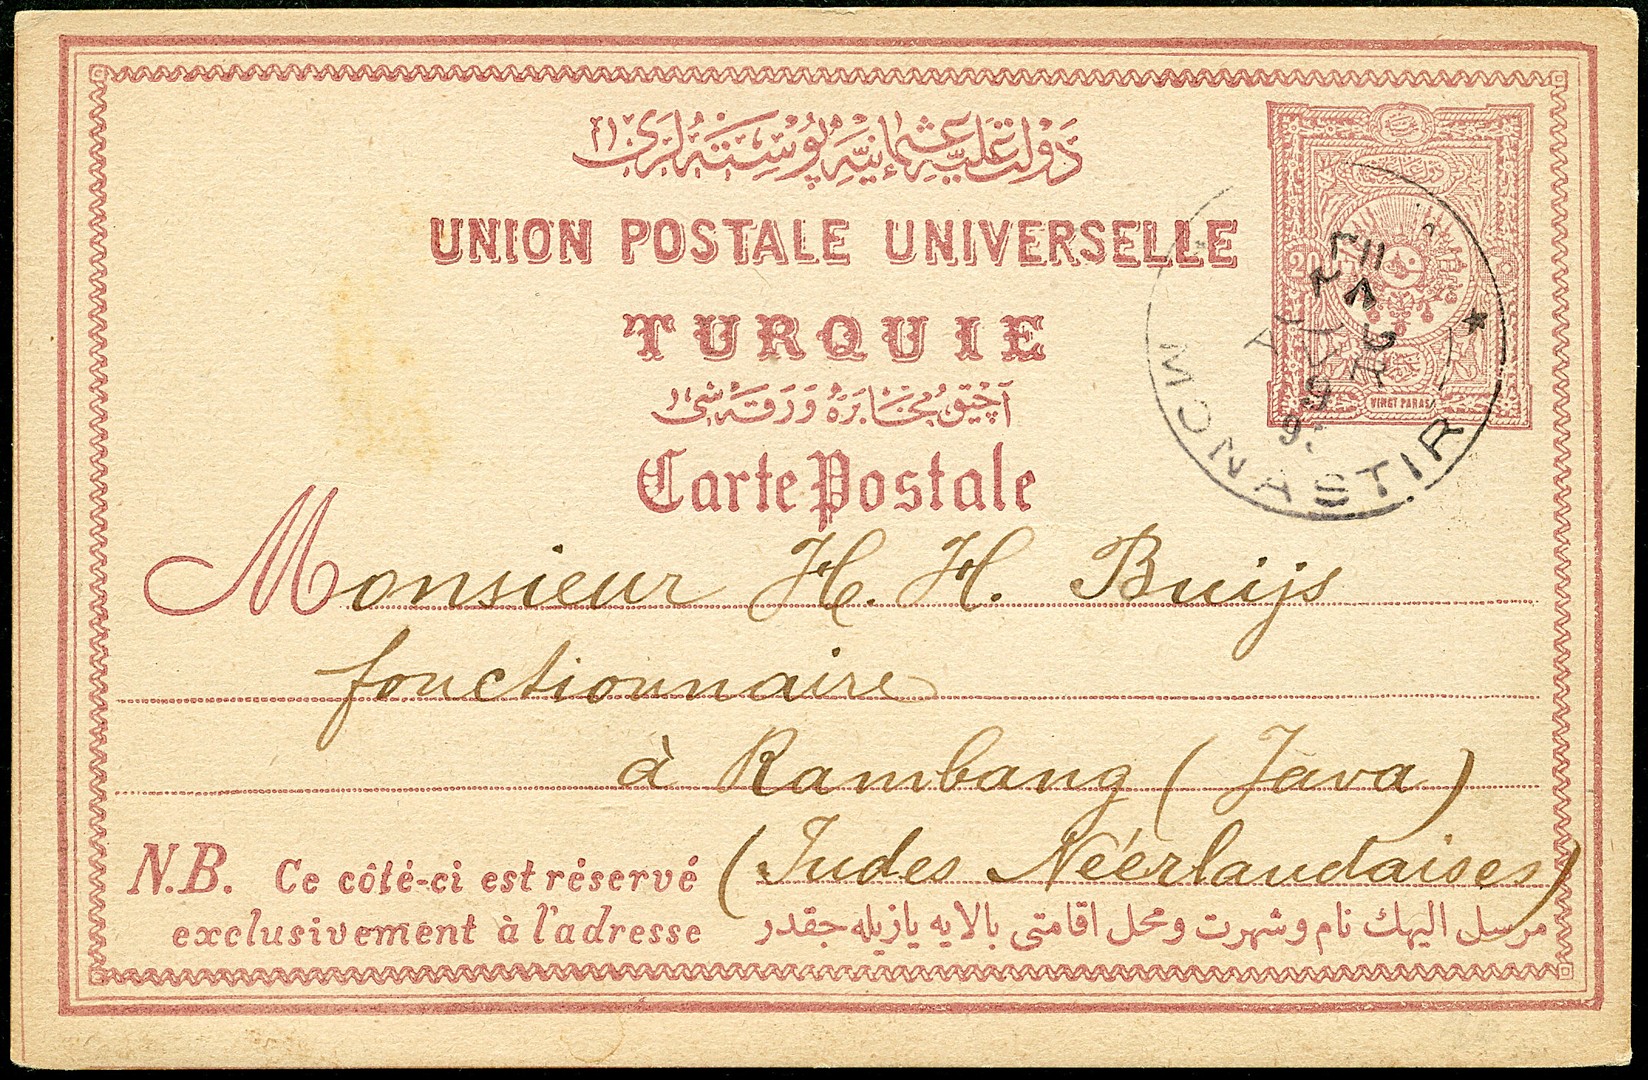 دولت علیه عثمانیه پوسته لری
UNION POSTALE UNIVERSELLE
TURQUIE
آچیق مخابره ورقه سی
Carte Postale
20
VINGT PARAS
MONASTIR
Monsieur H. H. Buijs
fonctionnaire
à Rambang (Java)
(Indes Néerlandaises)
N.B. Ce côté-ci est réservé
exclusivement à l'adresse
مرسل الیهك نام و شهرت و محل اقامتی بالایه یازیله جقدر